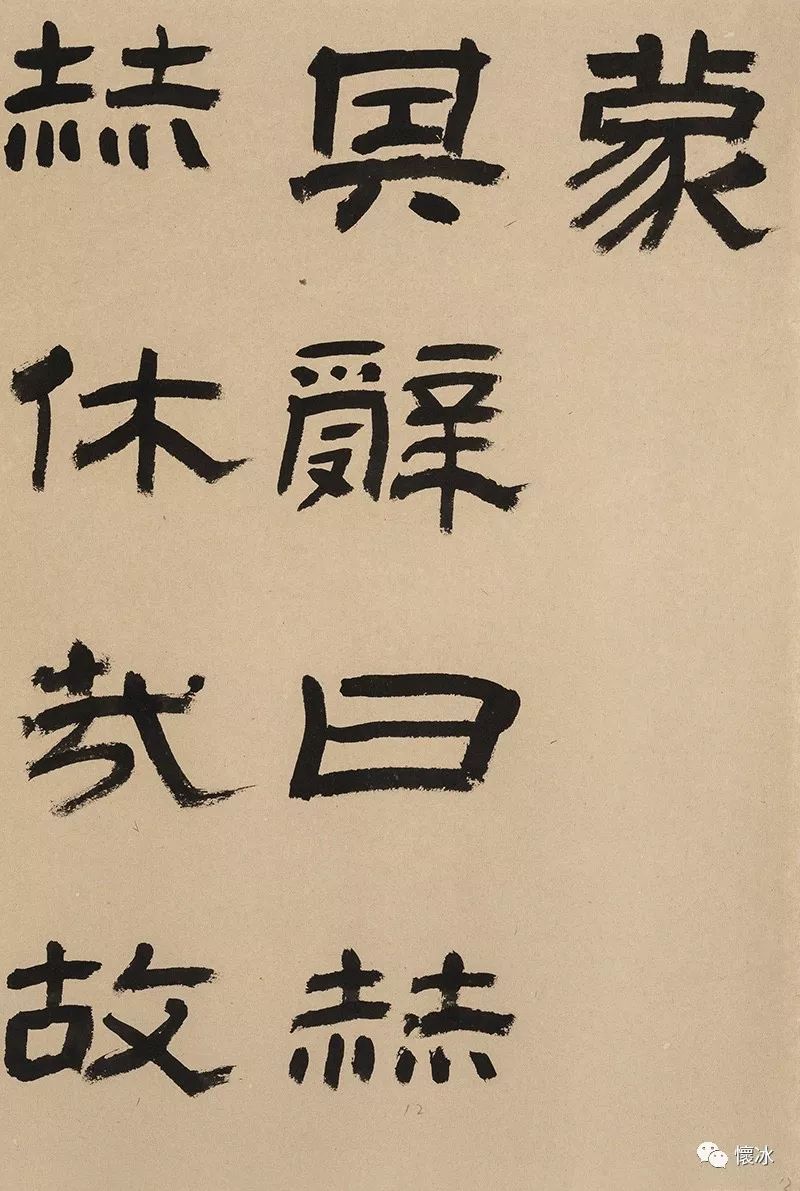 蒙
其辭曰赫
赫休哉故
12
懷冰